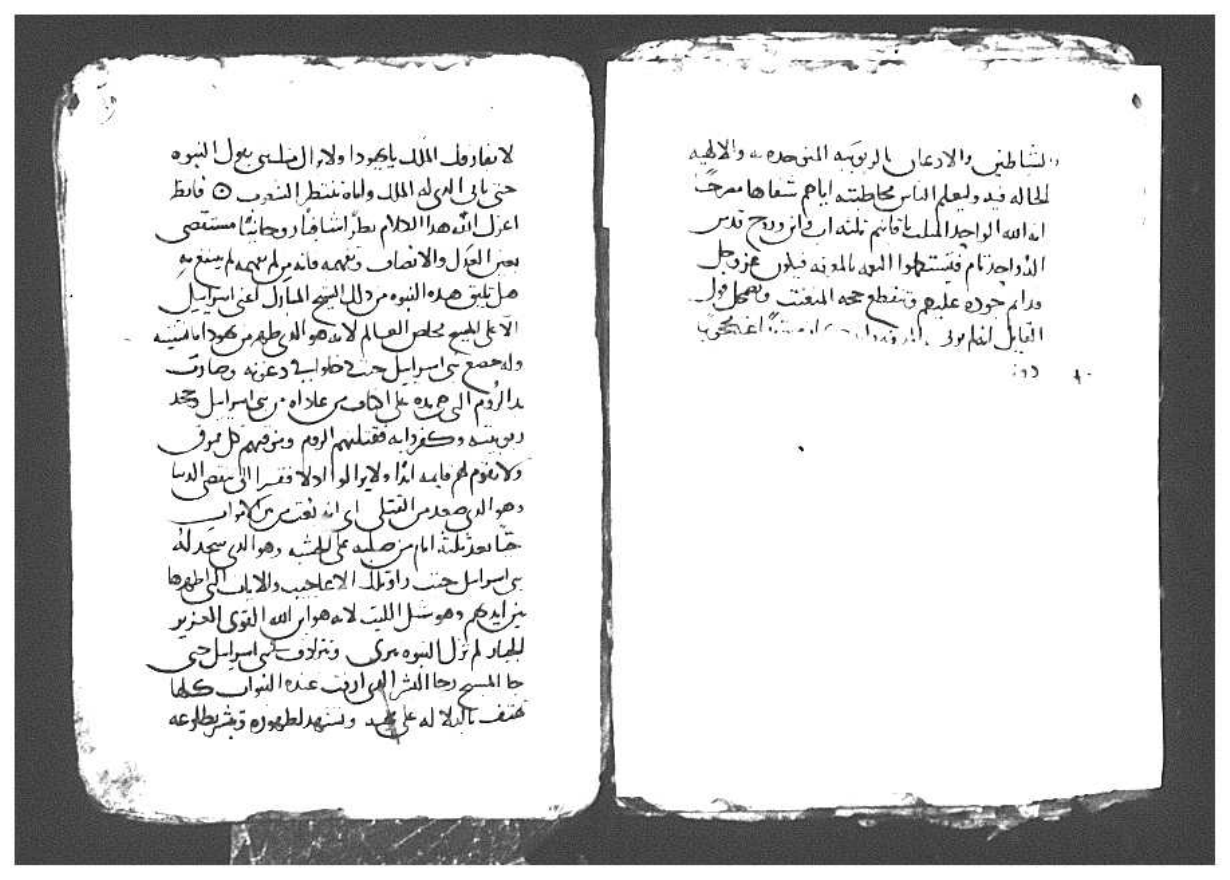 الشياطين والاذعان بالربوبيه المتوحده به والالهيه
الحاله فيه وليعلم الناس مخاطبته اياهم شفاها مصرحا
انه الله الواحد المثلث باقانيم ثلثه اب وابن وروح قدس
فيكون عز وجل
قدام جوده عليهم وتنقطع حجه المتعنت ويضمحل قول
القايل
دون
لا يفارقك الملك يا يهودا ولا يزال من نسلى يقول النبوه
حتى ياتى الدى له الملك واياه تنتظر الشعوب ۞ فانظر
اعزك الله هدا الكلام نظرا شافيا روحانيا مستقصى
بعين العدل والانصاف وتفهمه فانه من لم يفهمه لم ينتفع به
هل تليق هذه النبوه من ذلك الشيخ المبارك اعنى اسراييل
الا على المسيح مخلص العالم لانه هو الدى ظهر من يهودا
وله خضع بنى اسراييل حيث دخلوا فى دعوته وصارت
يد الروم التى على اكتاف من عاداه من بنى اسراييل وجحد
ربوبيته وكفر به فقتلتهم الروم ومزقتهم كل ممزق
ولا تقوم لهم قايمه ابدا ولا يزالوا ادلا فقرا الى نقض الدنيا
وهو الدى صعد من القتلى اى انه بعث من بين الاموات
حيا بعد ثلثه ايام من صلبه على الخشبه وهو الدى سجد له
بنى اسراييل حيث راو تلك الاعاجيب والايات التى اظهرها
بين ايديهم وهو شبل الليث لانه هو ابن الله القوى العزيز
الجبار لم تزل النبوه تترى وتترادف بنى اسراييل حتى
جا المسيح رجا البشر الدى عنده النبوات كلها
تهتف بالدلاله على وتشهد لظهوره وتبشر بطلوعه